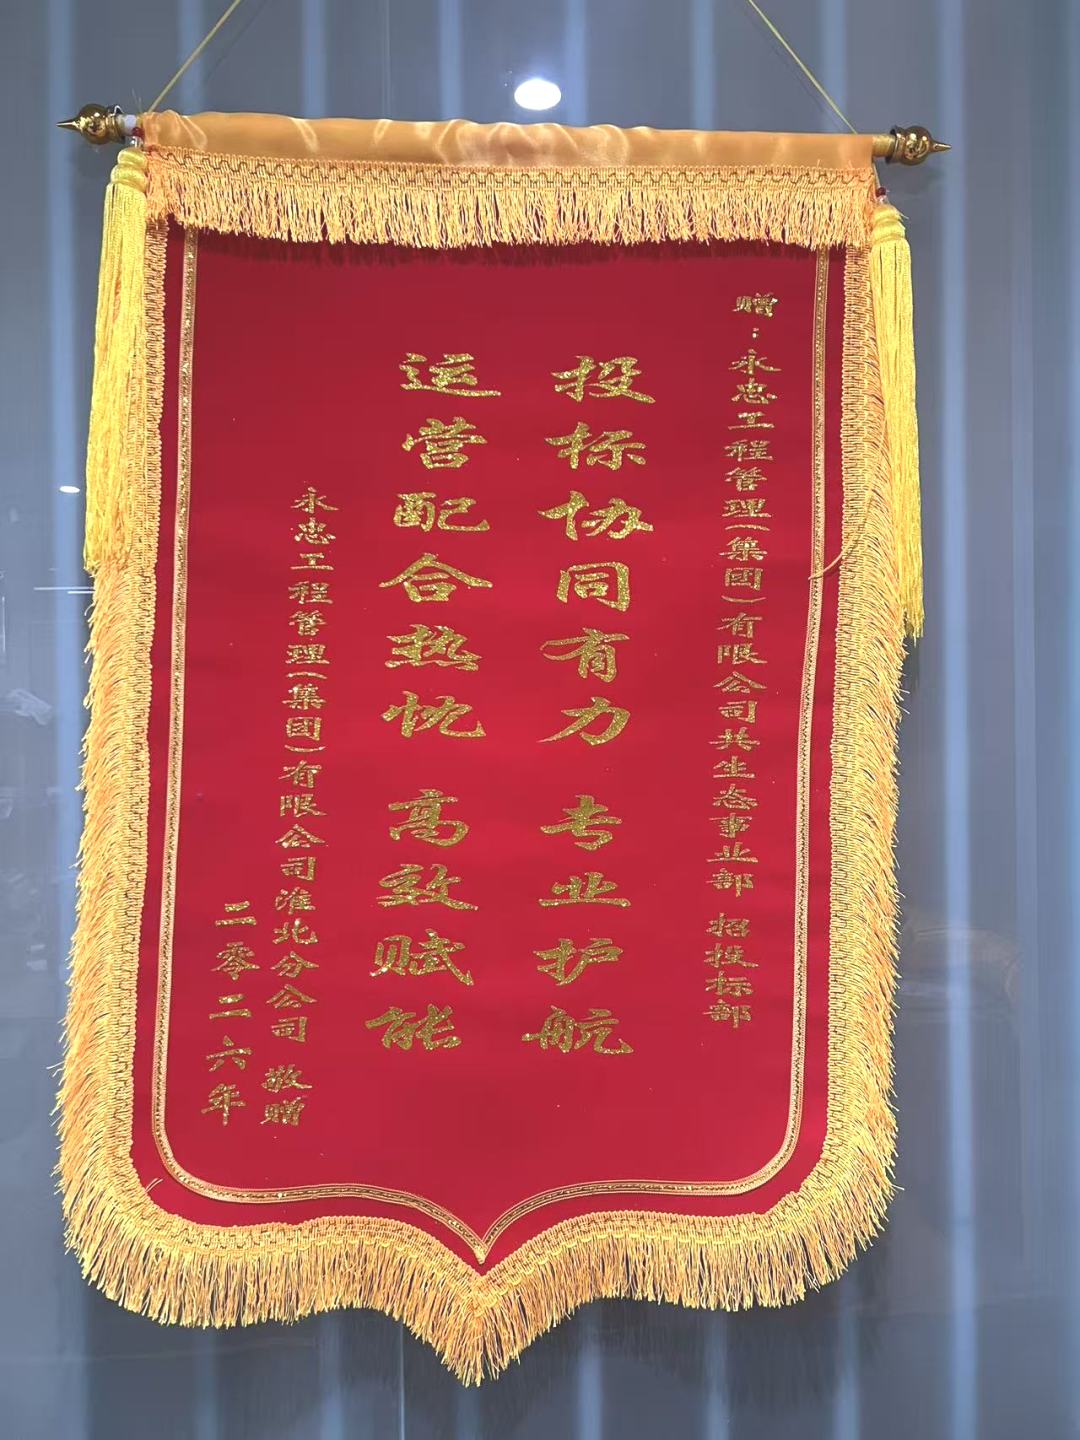 赠：永忠工程管理（集团）有限公司共生态事业部 招投标部
投标协同有力 专业护航
运营配合热忱 高效赋能
永忠工程管理（集团）有限公司淮北分公司 敬赠
二零二六年